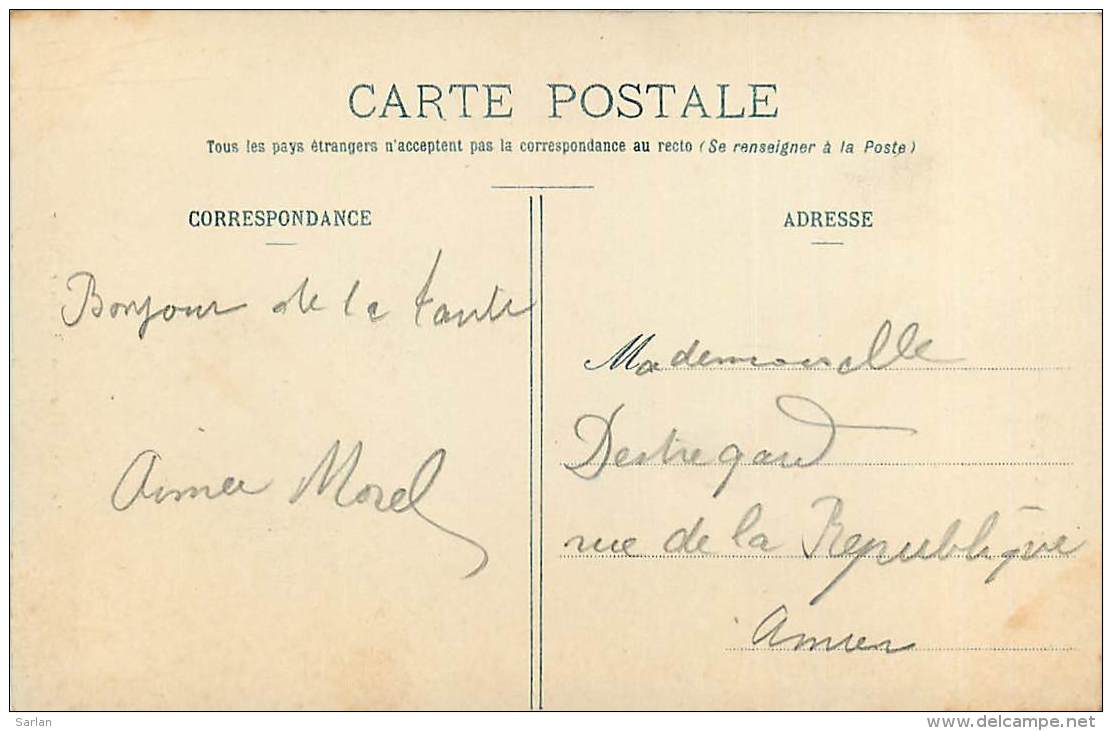 CARTE POSTALE
Tous les pays étrangers n'acceptent pas la correspondance au recto (Se renseigner à la Poste)
CORRESPONDANCE
Bonjour de la tante
Aimée Morel
ADRESSE
Mademoiselle
rue de la Republique
Sarlan
www.delcampe.net